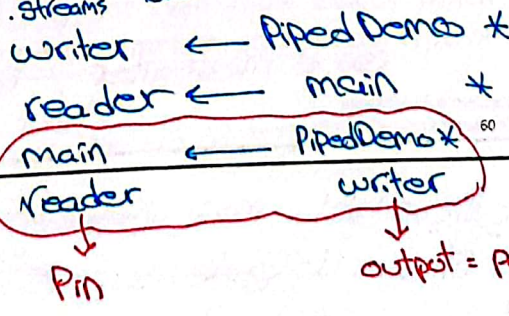 .streams
writer ← PipedDemo *
reader ← main *
main ← PipedDemo * 60
reader writer
↓ ↓
Pin output = P